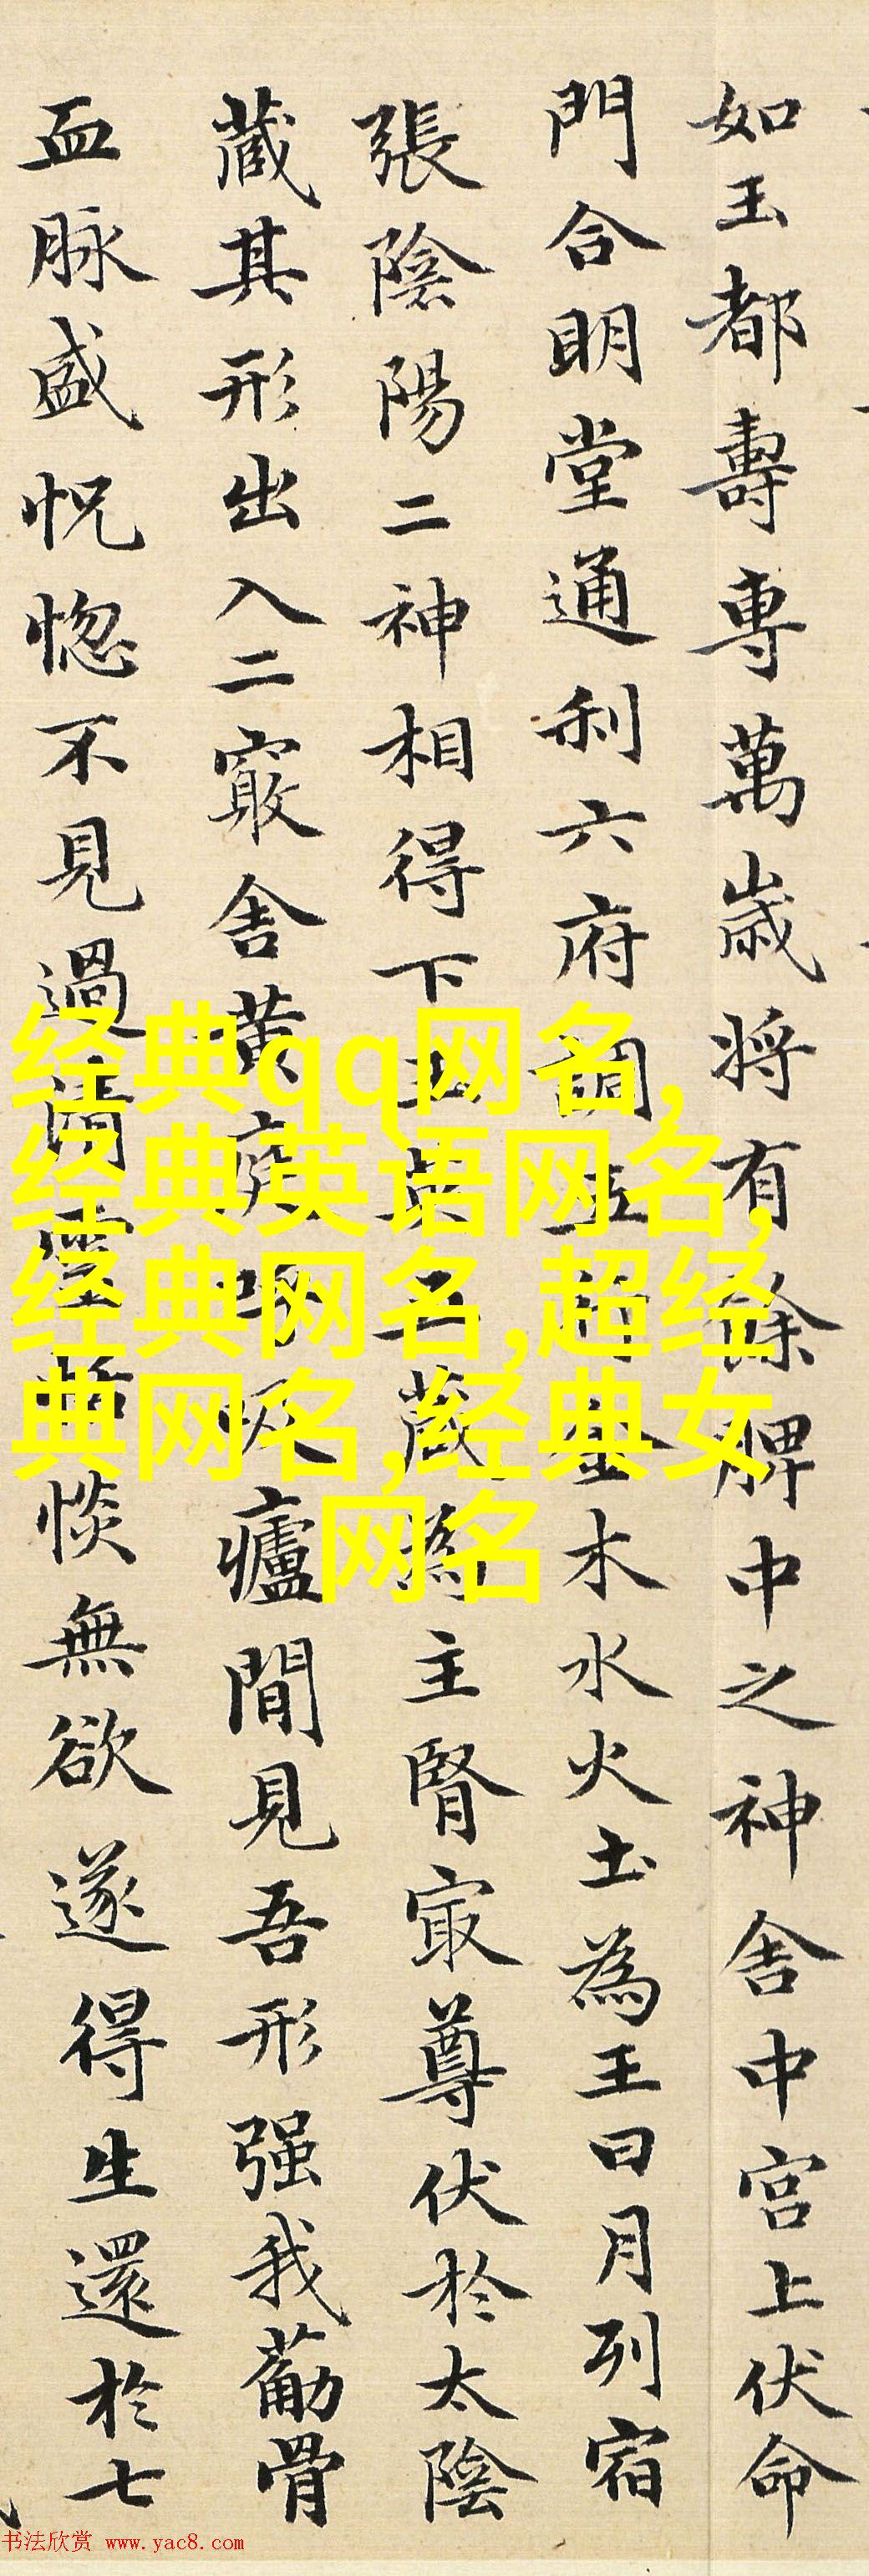 如玉都壽專萬歲将有餘脾中之神舍中宮上伏命
門合明堂通利六府調五行金木水火土為王日月列宿
張陰陽二神相得下玉英五藏為主腎冣尊伏於太陰
藏其形出入二竅舍黄庭呼吸廬間見吾形强我筋骨
血脉盛怳惚不見過清靈恬惔無欲遂得生還於七
经典qq网名,
经典英语网名,
经典网名,超经
典网名,经典女
网名
书法欣赏 www.yac8.com